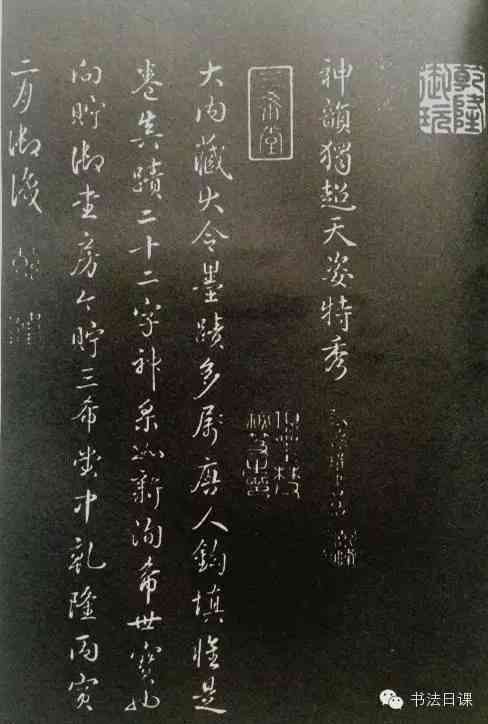 乾隆
御玩
神韻獨超天姿特秀
三希堂
大内藏大令墨蹟多屬唐人鈎填惟是
卷真蹟二十二字神采如新洵希世寶也
向貯御書房今貯三希堂中乾隆丙寅
二月御識
书法日课